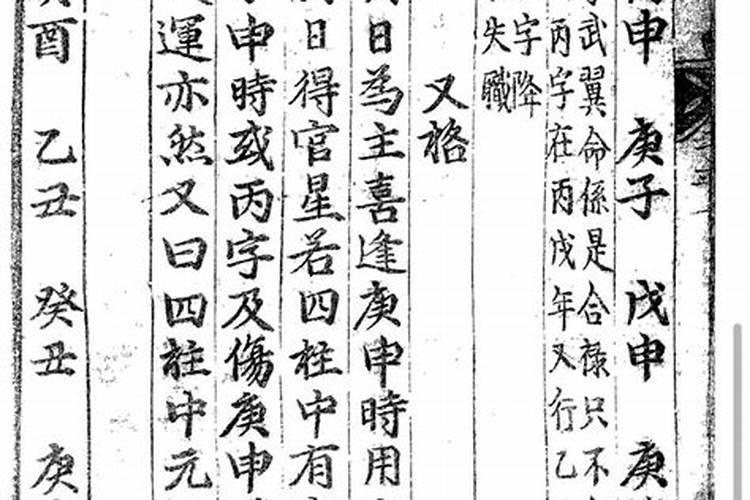 申　庚子　戊申　庚
武翼命係是合祿只不
丙字在丙戌年又行乙
字降
失職
又格
日為主喜逢庚申時用
日得官星若四柱中有
申時或丙字及傷庚申
運亦然又曰四柱中元
酉　乙丑　癸丑　庚